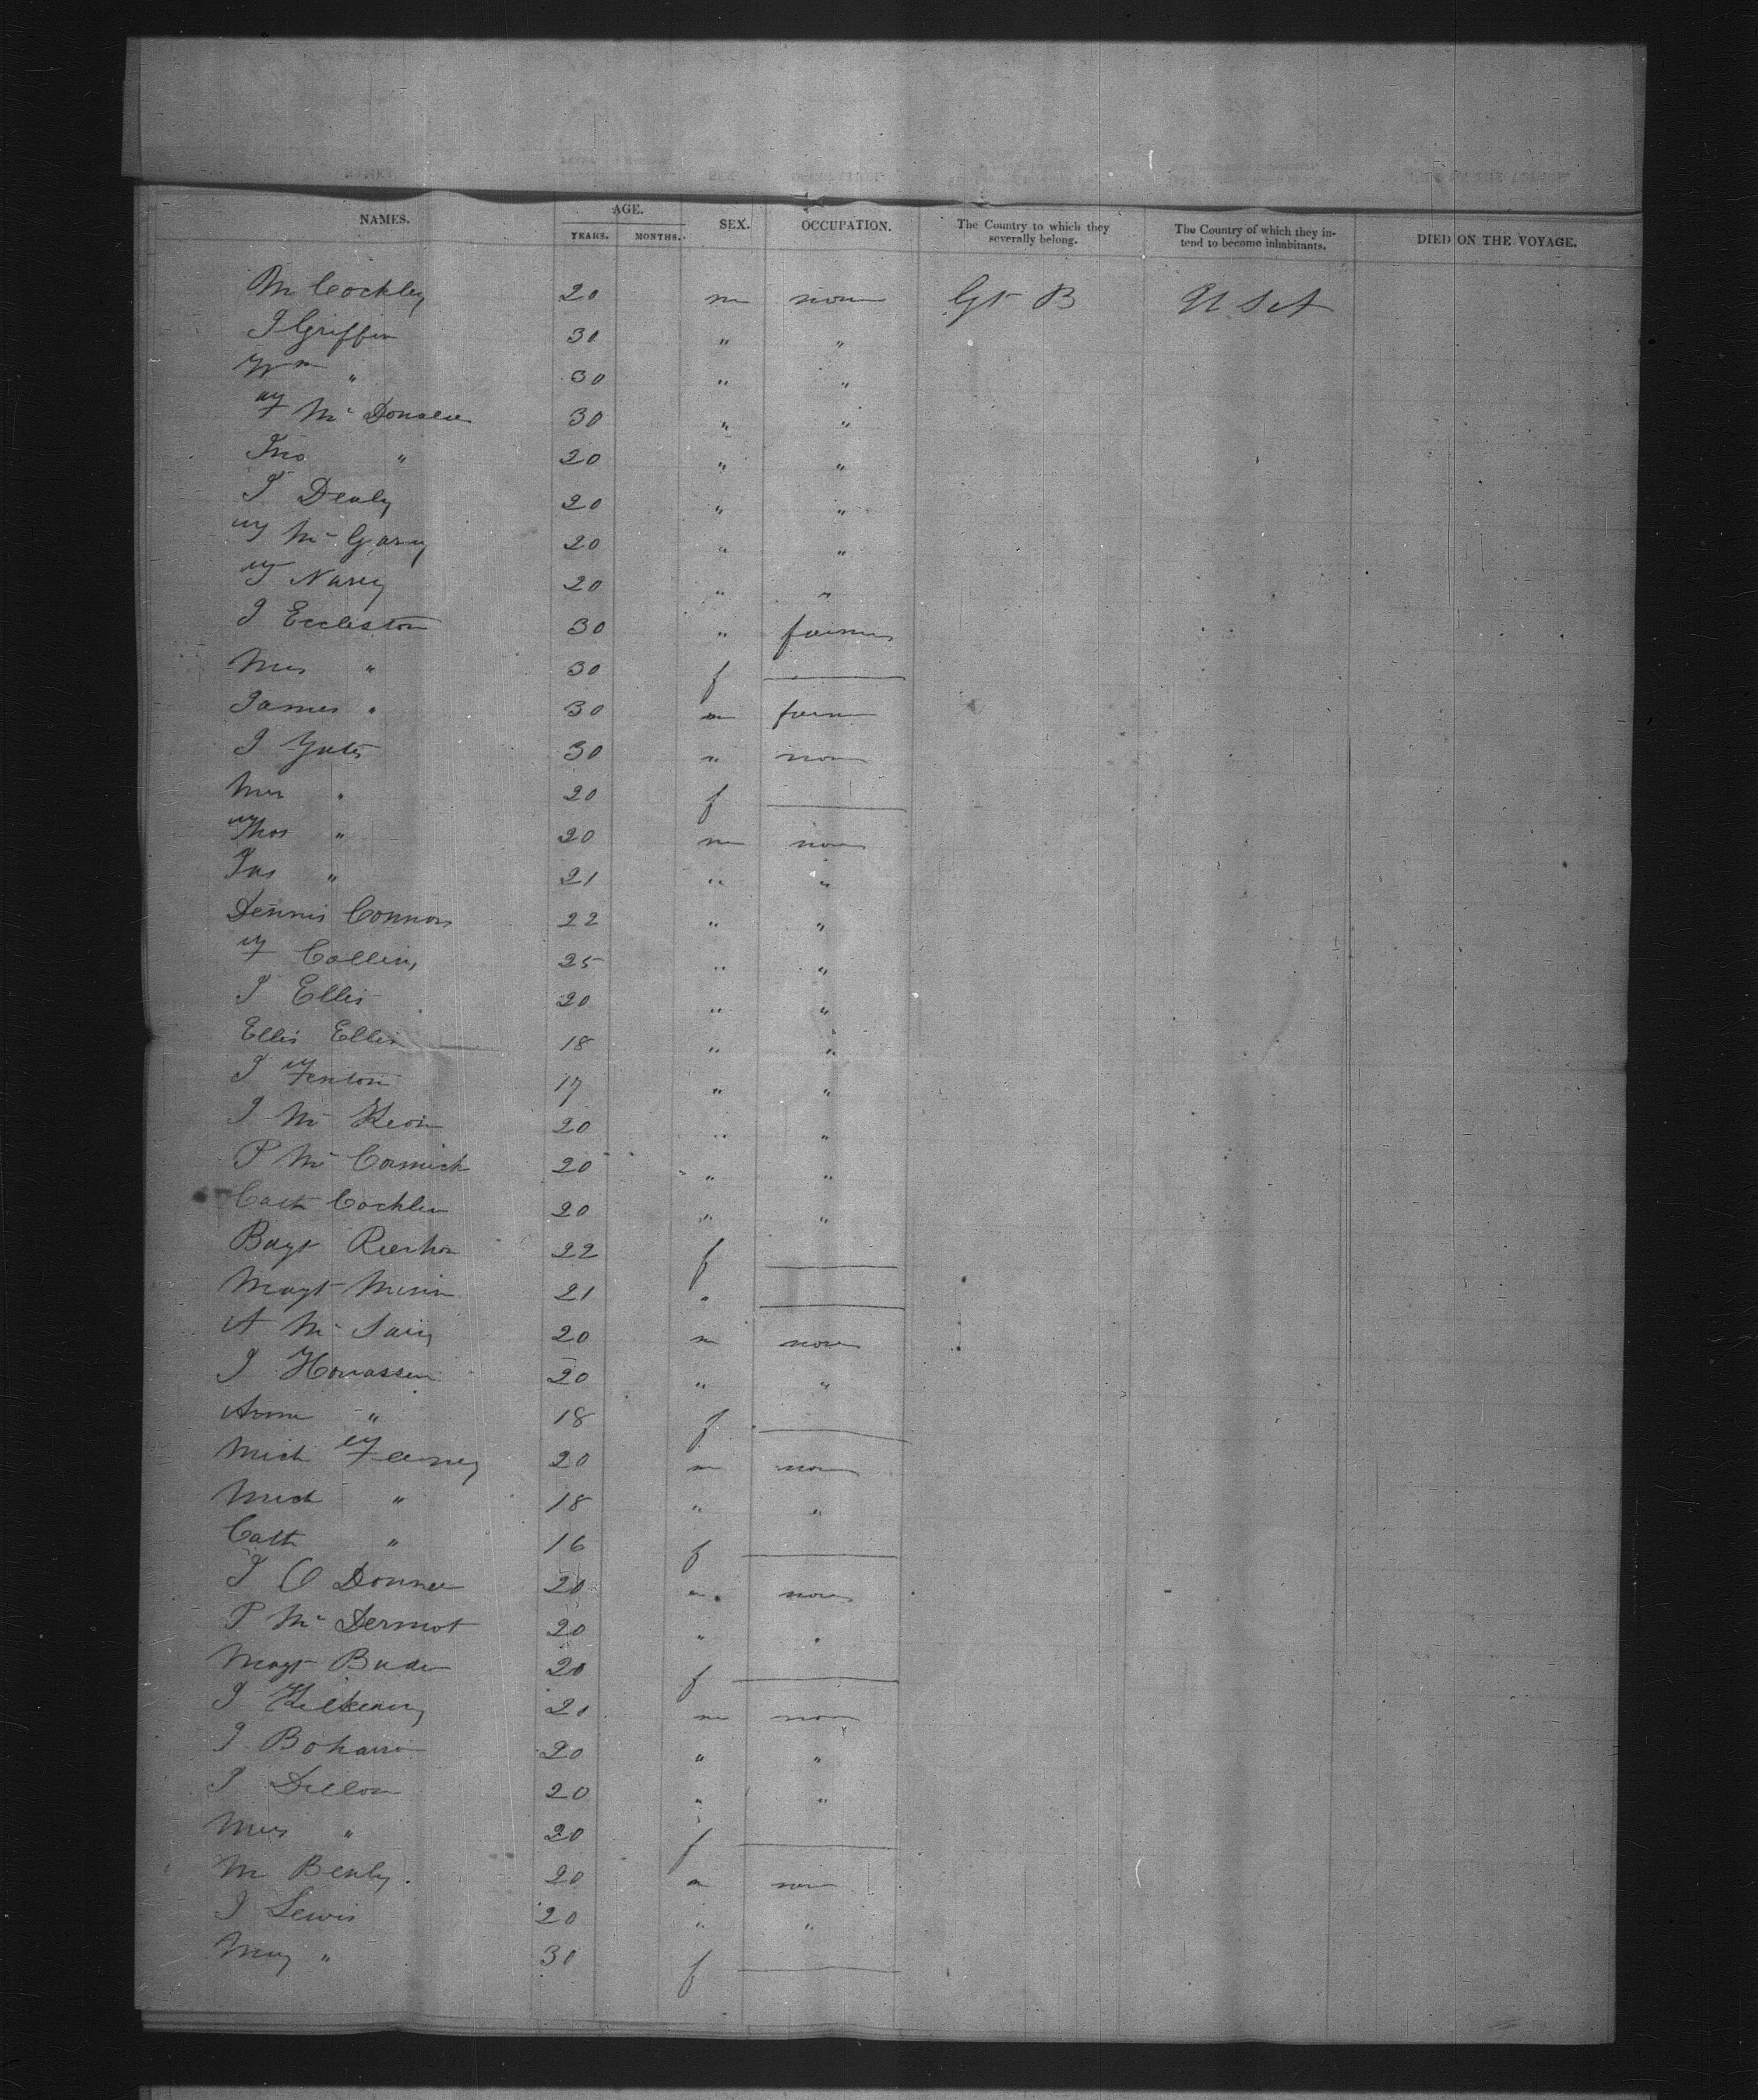 NAMES. AGE. YEARS. MONTHS. SEX. OCCUPATION. The Country to which they severally belong. The Country of which they intend to become inhabitants. DIED ON THE VOYAGE.
M Cockley 20 m none Gt B U S A
J Griffin 30 " "
Wm " 30 " "
F Mc Donald 30 " "
Jno " 20 " "
J Dealy 20 " "
F Mc Garry 20 " "
T Nary 20 " "
J Eccleston 30 " farmer
Mrs " 30 f
James " 30 m farmer
J Yates 30 " none
Mrs " 20 f
Thos " 20 m none
Jas " 21 " "
Dennis Connors 22 " "
F Collins 25 " "
J Ellis 20 " "
Ellis Ellis 18 " "
J Fenton 17 " "
J Mc Keon 20 " "
P Mc Cormick 20 " "
Cath Cochlin 20 " "
22 f
Magt 21 "
A Mc 20 m none
J 20 " "
Anne " 18 f
Mich 20 m none
Mich " 18 " "
Cath " 16 f
J O Donnell 20 m none
P Mc Dermot 20 " "
Magt 20 f
J Kilkenny 20 m none
J 20 " "
J Dillon 20 " "
Mrs " 20 f
M 20 m none
J Lewis 20 " "
Mary " 30 f